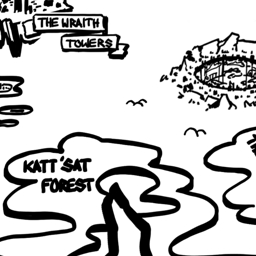 THE WRAITH
TOWERS
KATT'SAT
FOREST